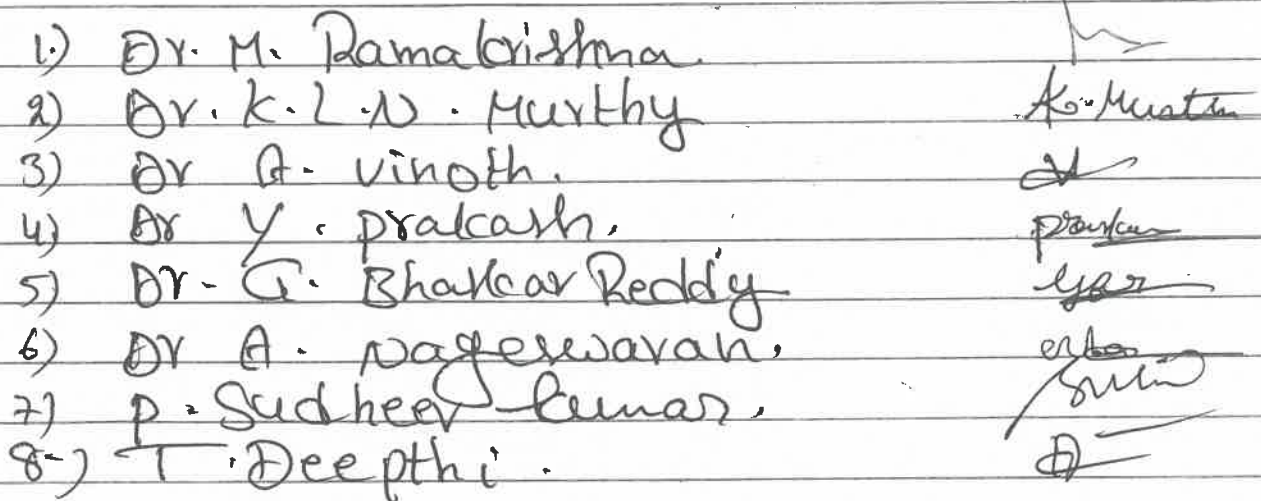 1.) Dr. M. Ramakrishna.
2) Dr. K. L. N. Murthy
3) Dr A. Vinoth.
4) Dr Y. prakash.
5) Dr. G. Bhaskar Reddy
6) Dr A. Nageswaran.
7) P. Sudheer kumar.
8-) T. Deepthi.